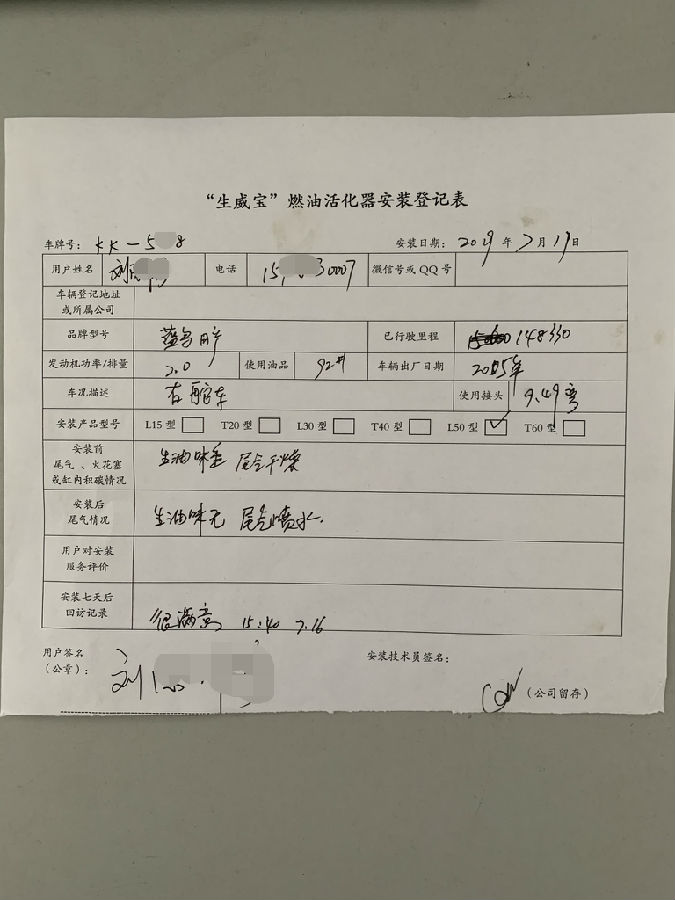 “生威宝”燃油活化器安装登记表
车牌号： 5 8 安装日期：2019年7月19日
用户姓名 刘 电话 15 30007 微信号或QQ号
车辆登记地址
或所属公司
品牌型号 已行驶里程 148330
发动机功率/排量 2.0 使用油品 92# 车辆出厂日期 2015年
车况描述 使用接头 9.49弯
安装产品型号 L15型 T20型 L30型 T40型 L50型 ✓ T60型
安装前
尾气、火花塞
或缸内积碳情况
生油味重 尾气干燥
安装后
尾气情况
生油味无 尾气喷水
用户对安装
服务评价
安装七天后
回访记录
很满意 15:40 7.26
用户签名
（公章）： 刘
安装技术员签名：
（公司留存）